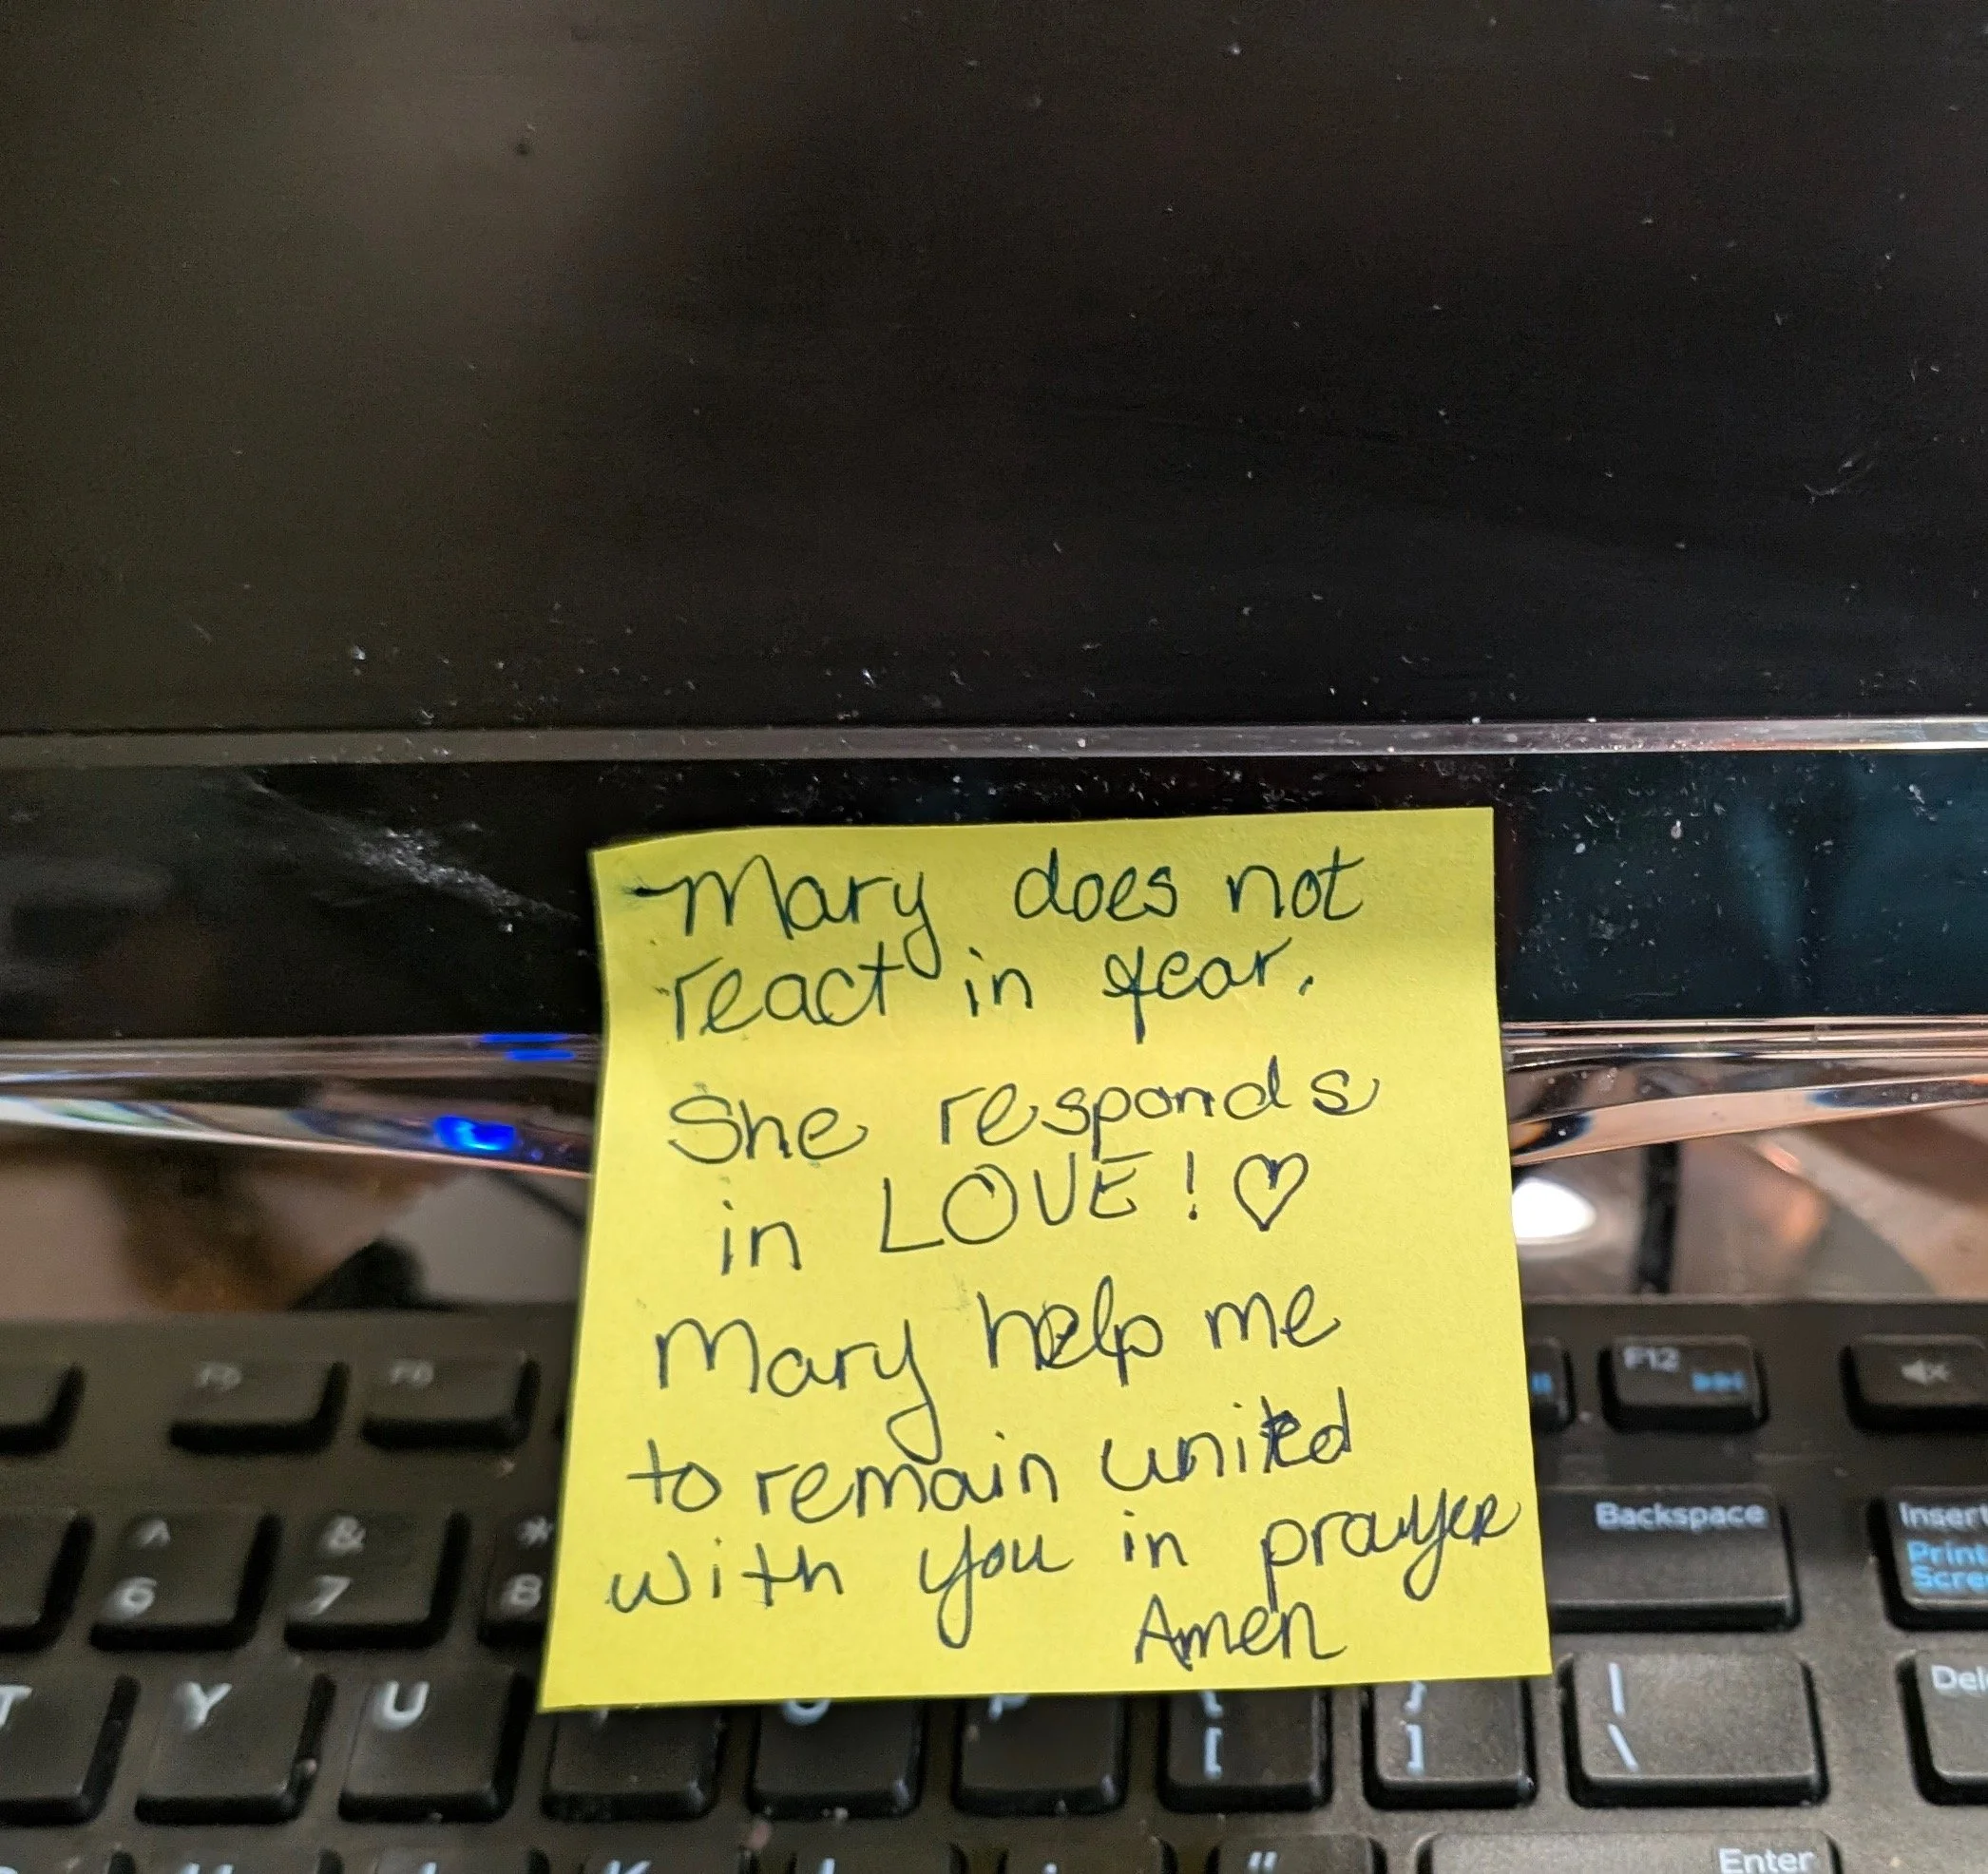 Mary does not
react in fear.
She responds
in LOVE! ♡
Mary help me
to remain united
with you in prayer
Amen
F5
F6
F12
Backspace
Insert
Print
^
6
&
7
*
8
T
Y
U
{
[
}
]
|
\
Enter
"